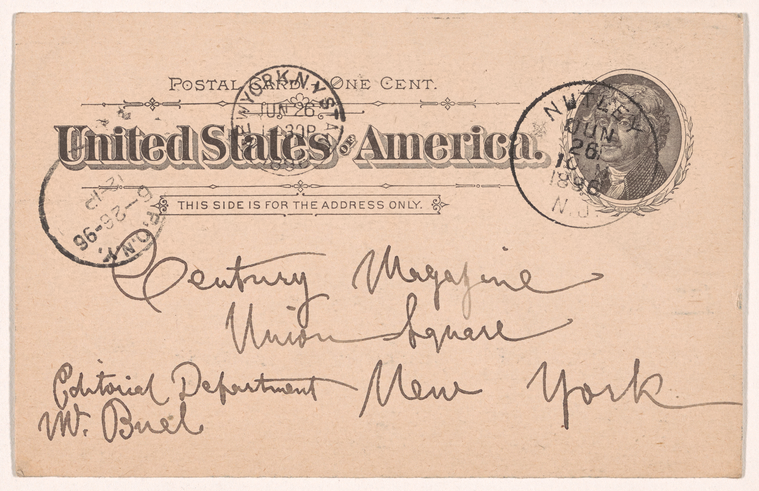 POSTAL CARD. ONE CENT.
United States of America.
THIS SIDE IS FOR THE ADDRESS ONLY.
NEW YORK, N.Y. STA.
JUN 26
30P
1896
NUTLEY
JUN
26
10
1896
N.J.
P.O.N.Y.
6-26-96
12
Century Magazine
Union Square
New York
Editorial Department
Mr. Buel